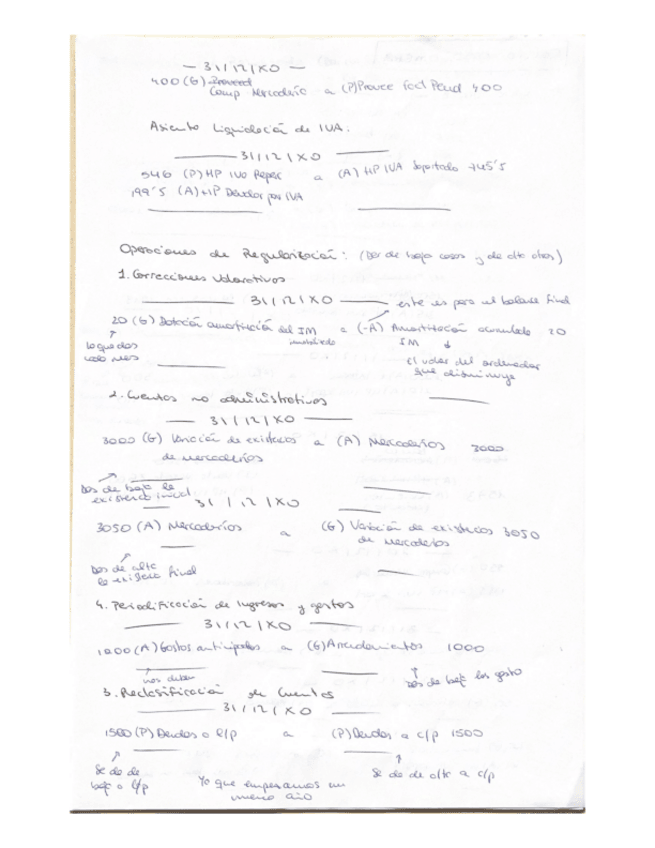 — 31/12/X0 —
400 (G) Comp Mercaderío a (P) Provee Fact Pend 400
Asiento Liquidación de IVA.
31/12/X0
546 (P) HP IVA Reperc a (A) HP IVA Soportado 745'5
199'5 (A) HP Deudor por IVA
Operaciones de Regularización: (Dar de baja cosas y de alta otras)
1. Correcciones Valorativas
31/12/X0 este es para el balance final
20 (G) Dotación amortización del IM a (-A) Amortización acumulada 20
inmovilizado IM
lo que das cada mes
El valor del ordenador
que disminuye
2. Cuentas no administrativas
— 31/12/X0
3000 (G) Variación de existencias a (A) Mercaderíos 3000
de mercaderíos
Das de baja la
existencia inicial
31/12/X0
3050 (A) Mercaderíos a (G) Variación de existencias 3050
de mercaderíos
Das de alta
la existencia final
4. Periodificación de Ingresos y gastos
31/12/X0
1000 (A) Gastos anticipados a (G) Arrendamientos 1000
nos deben
Das de baja los gasto
3. Reclasificación de Cuentas
31/12/X0
1500 (P) Deudas a l/p a (P) Deudas a c/p 1500
Se da de
baja a l/p
Se da de alta a c/p
Ya que empezamos un
nuevo año